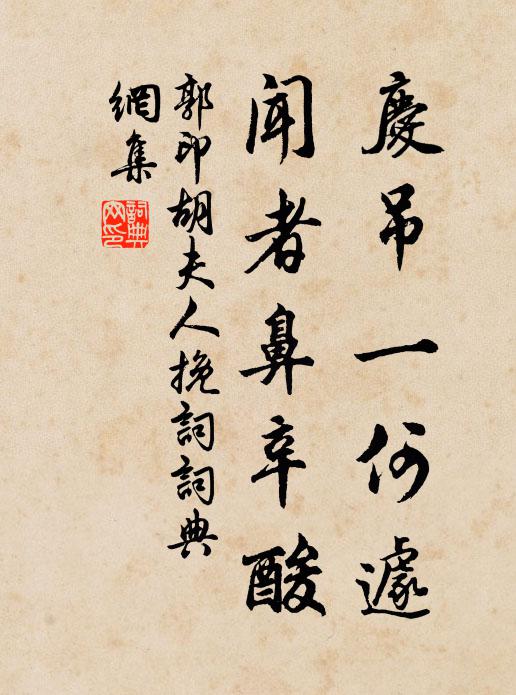 慶吊一何遽
聞者鼻辛酸
郭印胡夫人挽詞詞典
網集
詞典
网印